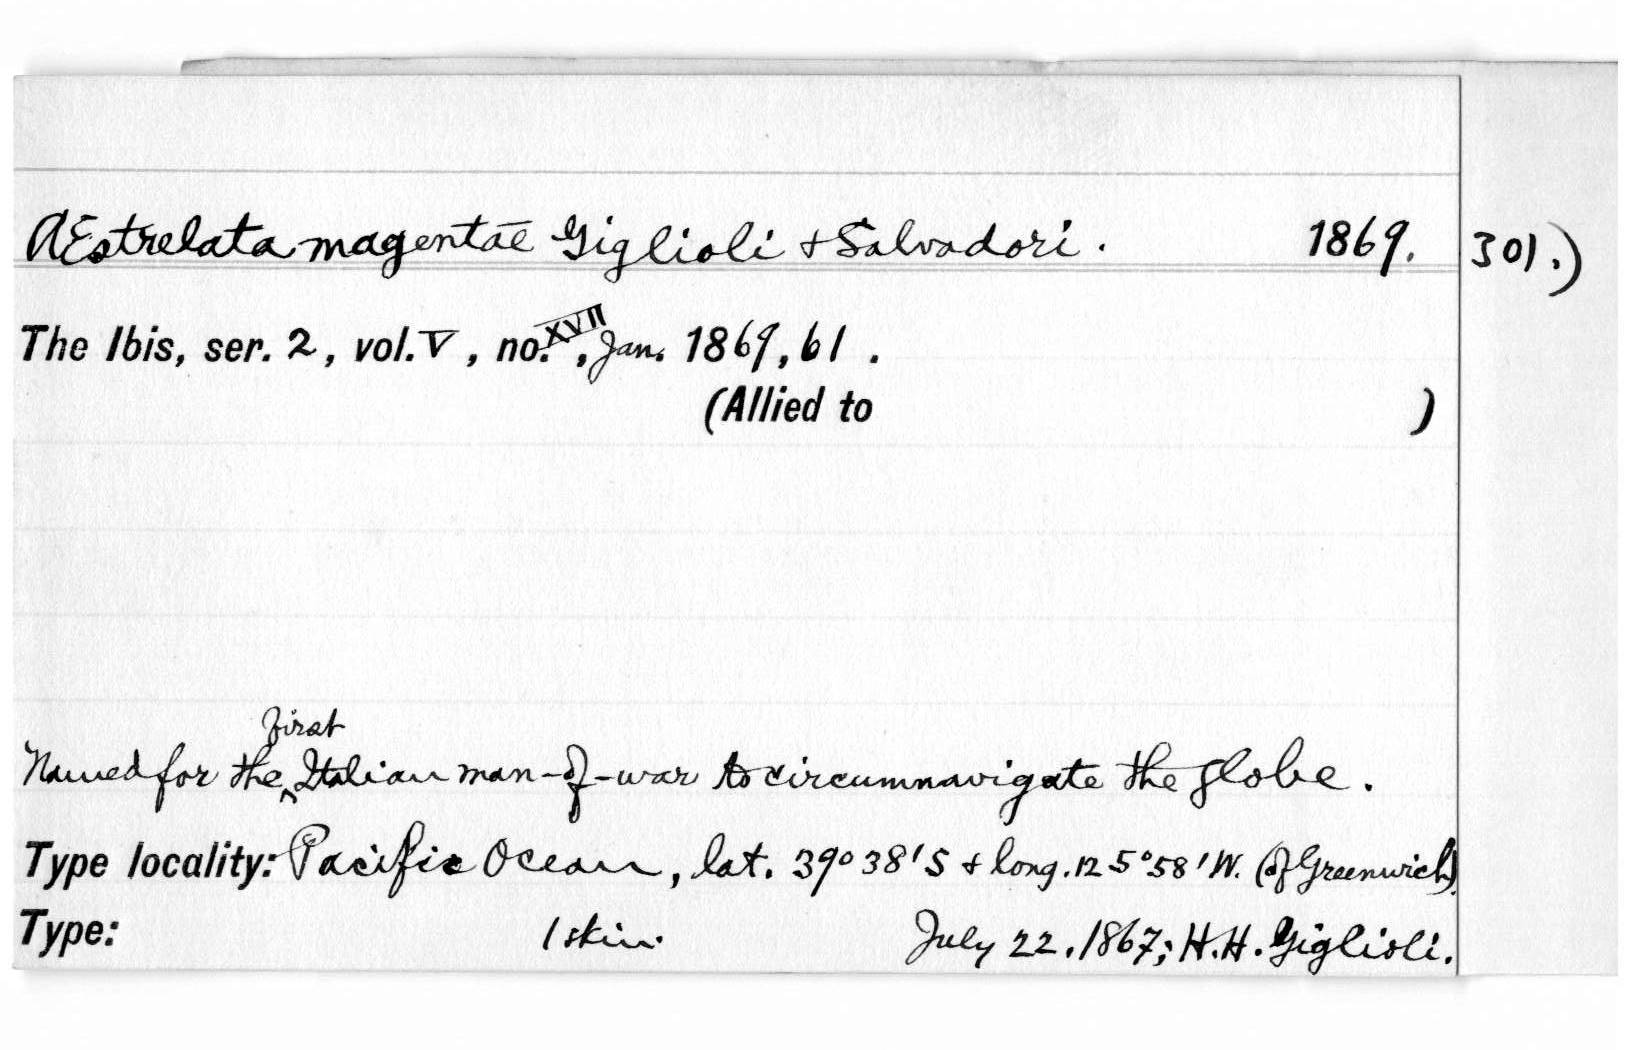 AEstrelata magentae Giglioli & Salvadori. 1869. 301.)
The Ibis, ser. 2, vol. V, no. XVII, Jan. 1869, 61.
(Allied to )
Named for the first Italian man-of-war to circumnavigate the globe.
Type locality: Pacific Ocean, lat. 39° 38' S & long. 125° 58' W. (of Greenwich).
Type: 1 skin. July 22. 1867; H.H. Giglioli.